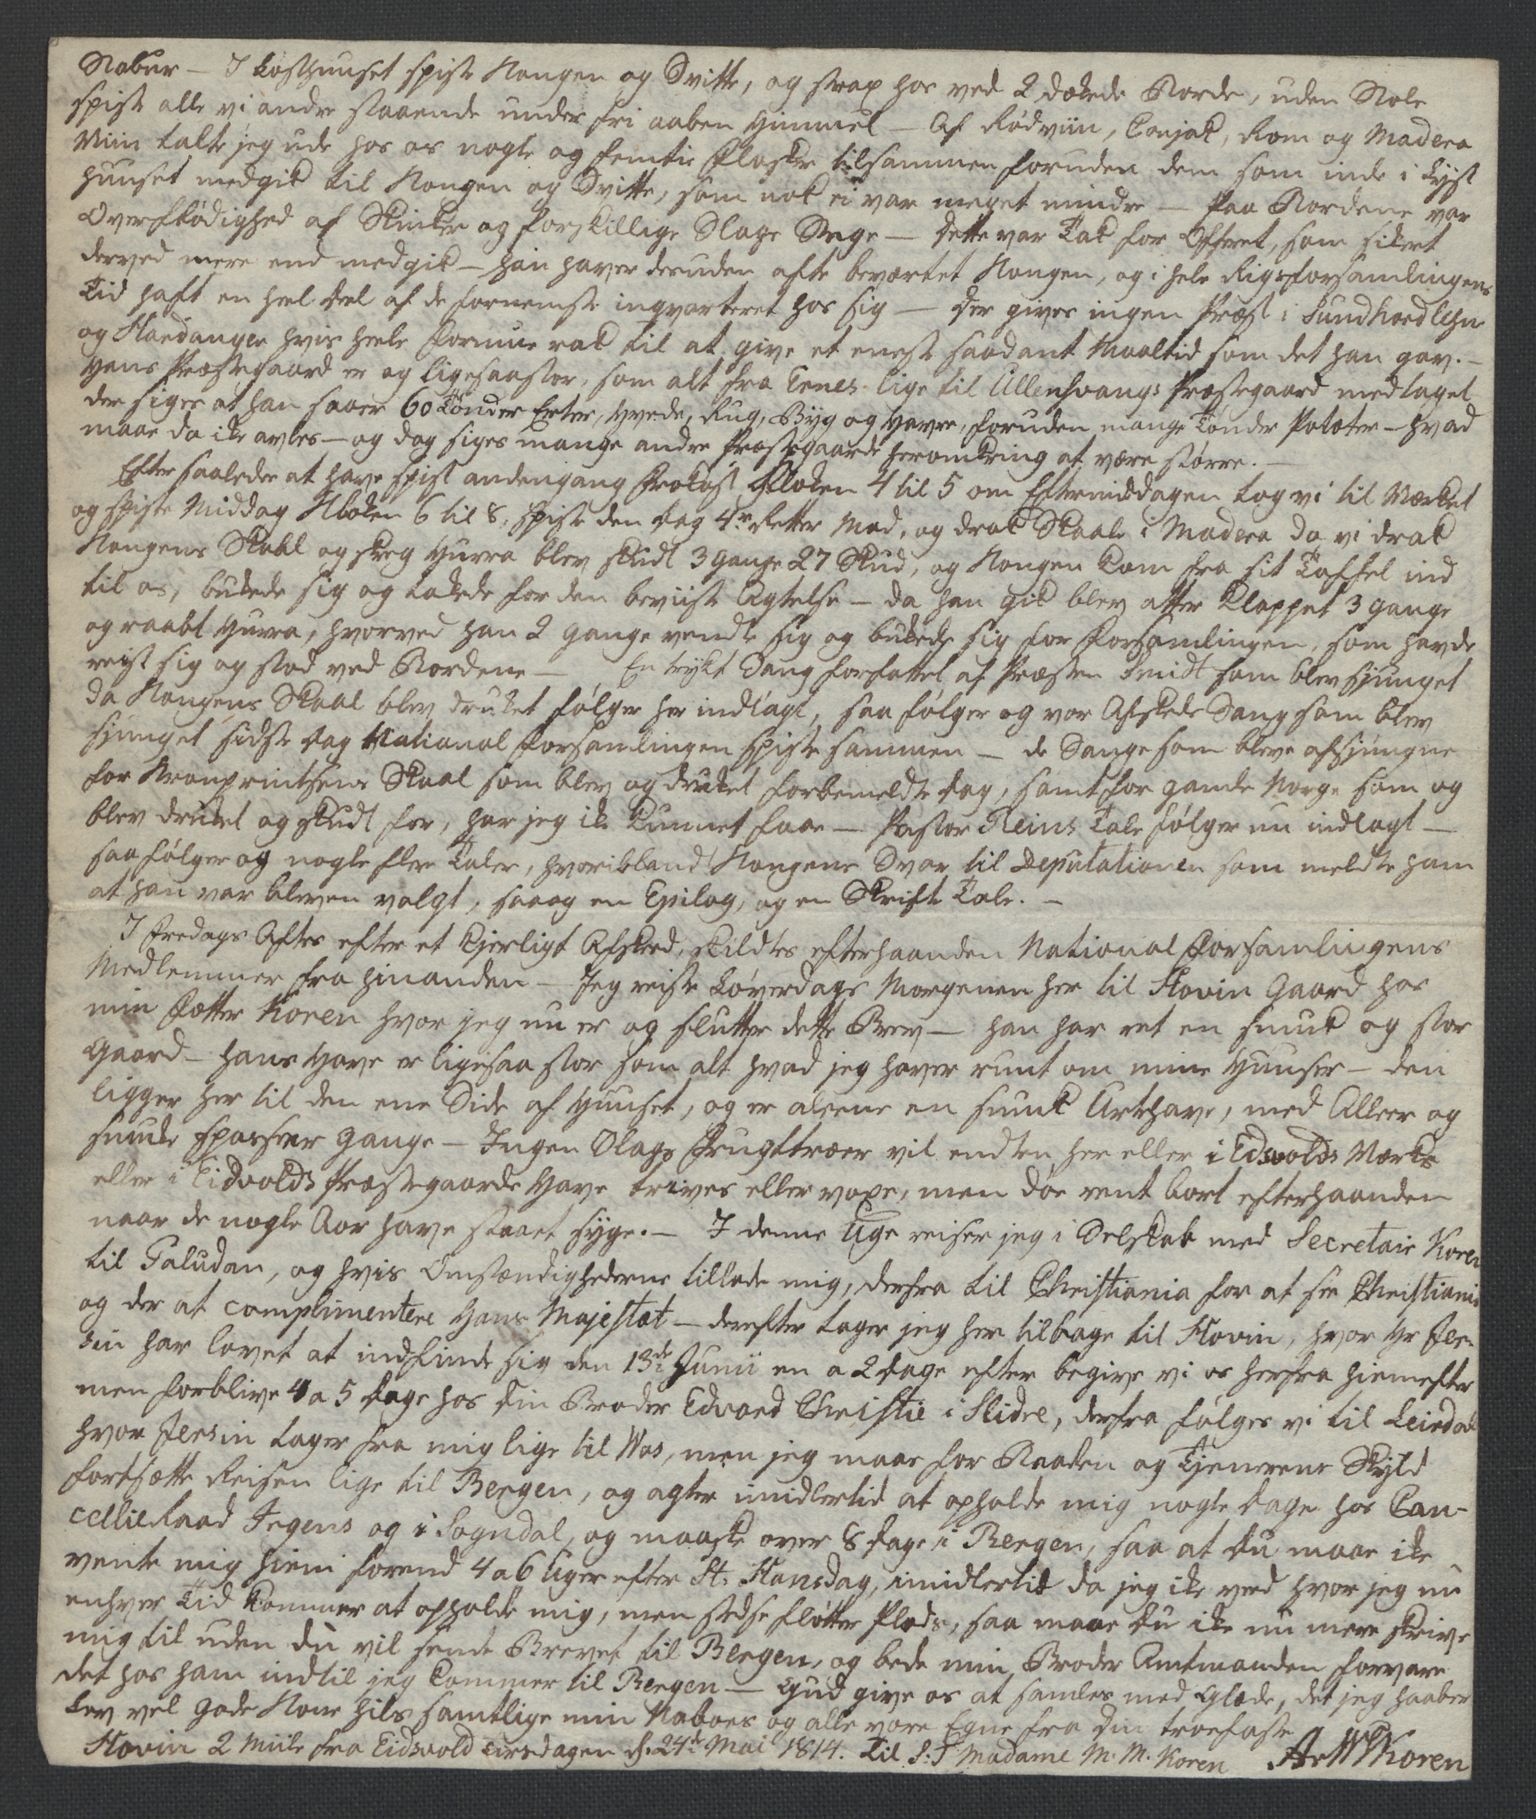 Nabur — I Lysthuuset spiste Kongen og Svitte, og strax hos ved 2 dækede Borde, uden Stole
spiste alle vi andre staaende under fri aaben Himmel — Af Rødviin, Conjak, Rom og Madera
Viin talte jeg ude hos os nogle og femtie Flasker tilsammen foruden dem som inde i Lyst
huuset medgik til Kongen og Svitte, som nok ei var meget mindre — Paa Bordene var
Overflødighed af Skinker og forskillige Slags Stege — dette var Tak for Offeret, som sikert
derved mere end medgik — han haver desuden ofte beværtet Kongen, og i hele Rigsforsamlingens
Tid haft en heel deel af de fornemste inqvarteret hos sig — der gives ingen Præst i Sundhordlehn
og Hardanger hvis heele Formue rak til at give et eneste saadant Maaltid som det han gav. —
Hans Præstegaard er og ligesaastor, som alt fra Ernes lige til Ullensvangs Præstegaard medtaget
der siges at han saaer 60 Tønder Erter, Hvede, Rug, Byg og Havre, foruden mange Tønder Poteter — hvad
maae da ike avles — og dog siges mange andre Præstegaarde heromkring at være større. —
Efter saaledes at have spist andengang Frokost Kloken 4 til 5 om Eftermiddagen tog vi til Værket
og spiste Middag Kloken 6 til 8, spiste den Dag 4re Retter Mad, og drak Skaaler i Madera da vi drak
Kongens Skaal og skreg Hurra blev skudt 3 gange 27 Skud, og Kongen kom fra sit Taffel ind
til os, bukede sig og takede for den beviiste Agtelse — da han gik blev atter klappet 3 gange
og raabt Hurra, hvorved han 2 gange vendte sig og bukede sig for Forsamlingen, som havde
reist sig og stod ved Bordene — En trykt Sang forfattet af Præsten Smidt som blev sjunget
da Kongens Skaal blev druket følger her indlagt, saa følger og vor Afskeds Sang som blev
sjunget sidste dag National Forsamlingen spiste sammen — de Sange som bleve afsjungne
for Kronprintsens Skaal som blev og druket forbemeldte dag, samt for gamle Norge som og
blev druket og skudt for, har jeg ike kunnet faae — Pastor Reins Tale følger nu indlagt —
saa følger og nogle flere Taler, hvoriblandt Kongens Svar til Deputationen som meldte ham
at han var bleven valgt, saaog en Epilog, og en Skrifte Tale. —
I Fredags Aftes efter et kjerligt Afsked, skildtes efterhaanden National Forsamlingens
Medlemmer fra hinanden — Jeg reiste Løverdags Morgenen her til Hovin Gaard hos
min Fætter Koren hvor jeg nu er og slutter dette Brev — han har ret en smuk og stor
Gaard — hans Have er ligesaa stor som alt hvad jeg haver runt om mine Huuser — den
ligger her til den ene Side af Huuset, og er aleene en smuk Urtehave, med Alleer og
smuke spatseer gange — Ingen Slags Frugttræer vil endten her eller i Eidsvolds Værks
eller i Eidvolds Præstegaards Have trives eller voxe, men døe rent bort efterhaanden
naar de nogle Aar have staaet syge. — I denne Uge reiser jeg i Selskab med Secretair Koren
til Paludan, og hvis Omstændighederne tillade mig, derfra til Christiania for at see Christiania
og der at complimentere Hans Majestæt — derefter tager jeg her tilbage til Hovin, hvor Hr Jer-
sin har lovet at indfinde sig den 13de Junii en a 2 dage efter begive vi os herfra hiemefter
men forblive 4 a 5 dage hos din Broder Edvard Christie i Slidre, derfra følges vi til Leirdal
hvor Jersin tager fra mig lige til Wos, men jeg maae for Baaden og Tjenerens Skyld
fortsætte Reisen lige til Bergen, og agter imidlertid at opholde mig nogle dage hos Can-
cellieRaad Irgens og i Sogndal, og maaske over 8 dage i Bergen, saa at du maae ike
vente mig hiem forend 4 a 6 Uger efter St. Hansdag, imidlertid da jeg ike veed hvor jeg nu
enhver Tid kommer at opholde mig, men stedse fløtter Plads, saa maae du ike nu mere skrive
mig til uden du vil sende Brevet til Bergen, og bede min Broder Amtmanden forvare
det hos ham indtil jeg kommer til Bergen — Gud give os at samles med Glæde, det jeg haaber
Lev vel gode Kone hils samtlige min Naboes og alle vore Egne fra din troefaste
Hovin 2 Miile fra Eidsvold tirsdagen d. 24de Mai 1814. Til S: T Madame M. M. Koren ArWKoren